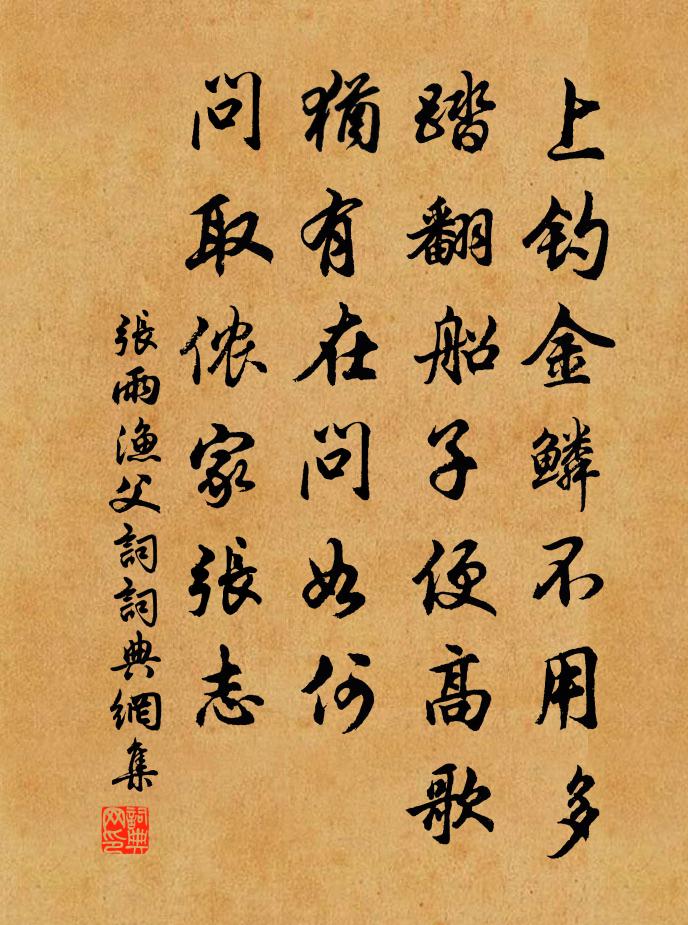 上钓金鳞不用多
踏翻船子便高歌
猶有在問如何
問取儂家張志
張雨漁父詞詞典網集
詞典网印